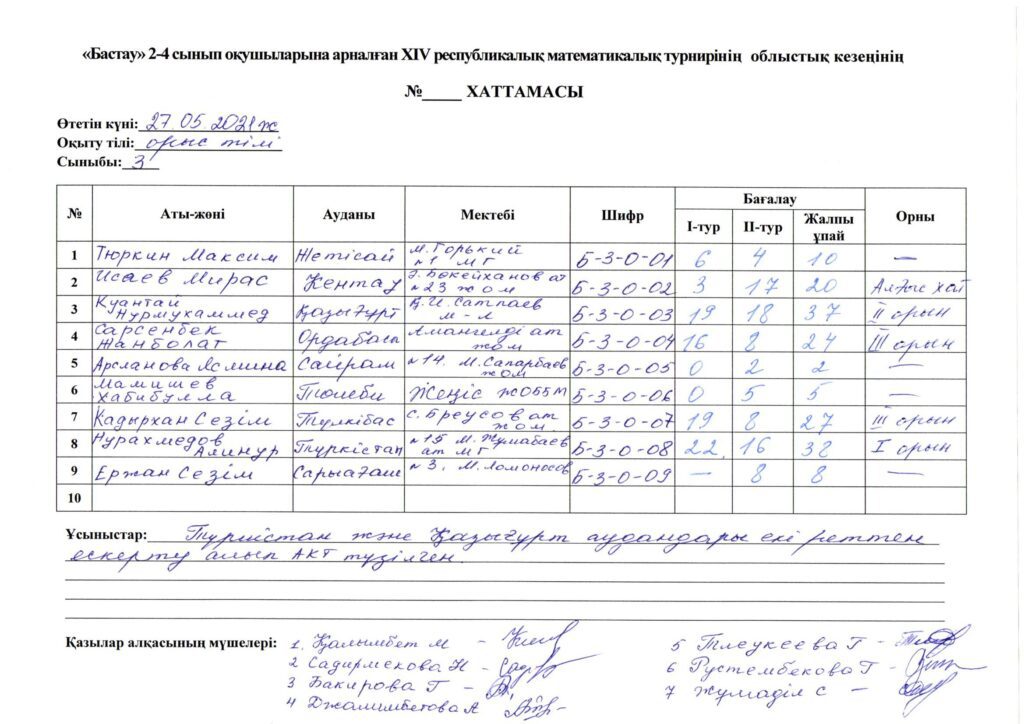 «Бастау» 2-4 сынып оқушыларына арналған XIV республикалық математикалық турнирінің облыстық кезеңінің
№____ ХАТТАМАСЫ
Өтетін күні: 27.05.2021ж
Оқыту тілі: орыс тілі
Сыныбы: 3
№ Аты-жөні Ауданы Мектебі Шифр Бағалау Орны
І-тур ІІ-тур Жалпы ұпай
1 Тюркин Максим Жетісай М.Горький №1 МГ Б-3-0-01 6 4 10 —
2 Исаев Мирас Кентау Ә.Бөкейханов ат №23 ЖОМ Б-3-0-02 3 17 20 Алғыс хат
3 Қуантай Нурмухаммед Қазығұрт Қ.И.Сатпаев м-л Б-3-0-03 19 18 37 ІІ орын
4 Сарсенбек Жанболат Ордабасы Амангелді ат жом Б-3-0-04 16 8 24 ІІІ орын
5 Арсланова Ясмина Сайрам №14. М.Сапарбаев жом Б-3-0-05 0 2 2 —
6 Мамишев Хабибулла Төлеби Жеңіс ЖОББМ Б-3-0-06 0 5 5 —
7 Кадырхан Сезім Түлкібас С.Бреусов ат жом. Б-3-0-07 19 8 27 ІІІ орын
8 Нурахмедов Алинур Түркістан №15 М.Жұмабаев ат МГ Б-3-0-08 22 16 38 І орын
9 Ержан Сезім Сарыағаш №3. М.Ломоносов Б-3-0-09 — 8 8 —
10
Ұсыныстар: Түркістан және Қазығұрт аудандары екі реттен
ескерту алып АКТ түзілген.
Қазылар алқасының мүшелері: 1. Қалымбет М -
2 Садирмекова Н -
3 Бакирова Г -
4 Джалимбетова А
5 Тлеукеева Г -
6 Рустембекова Г -
7 Жумаділ С -